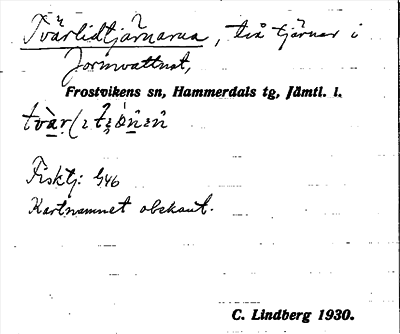 Tvärlidtjärnarna, två tjärnar i
Jormvattnet,
Frostvikens sn, Hammerdals tg, Jämtl. l.
Fisktj: 546
Kartnamnet obekant.
C. Lindberg 1930.